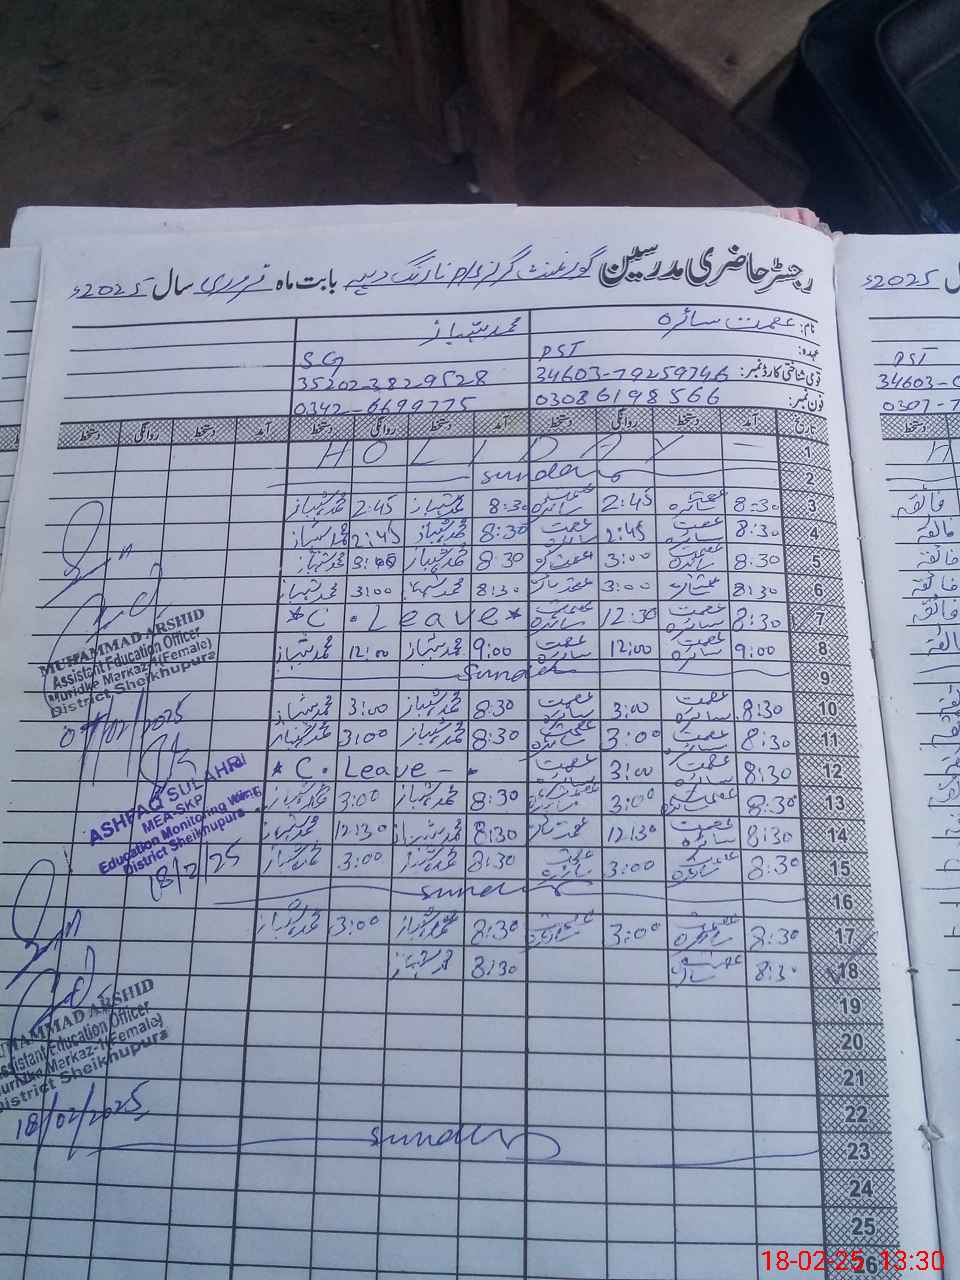 رجسٹر حاضری مدرسین گورنمنٹ گرلز نارنگ بابت ماہ فروری سال 2025ء
نام: عصمت سائرہ محمد شہباز
عہدہ: PST SG
قومی شناختی کارڈ نمبر: 34603-79259746 35202-3829528
فون نمبر: 03086198566 0342-6699775
تاریخ آمد دستخط روانگی دستخط آمد دستخط روانگی دستخط آمد دستخط روانگی دستخط
1 HOLIDAY
2 sunday
3 8:30 عصمت سائرہ 2:45 عصمت سائرہ 8:30 محمد شہباز 2:45 محمد شہباز
4 8:30 عصمت سائرہ 2:45 عصمت سائرہ 8:30 محمد شہباز 2:45 محمد شہباز
5 8:30 عصمت سائرہ 3:00 عصمت سائرہ 8:30 محمد شہباز 3:00 محمد شہباز
6 8:30 عصمت سائرہ 3:00 عصمت سائرہ 8:30 محمد شہباز 3:00 محمد شہباز
7 8:30 عصمت سائرہ 12:30 عصمت سائرہ *C. Leave*
8 9:00 عصمت سائرہ 12:00 عصمت سائرہ 9:00 محمد شہباز 12:00 محمد شہباز
9 Sunday
10 8:30 عصمت سائرہ 3:00 عصمت سائرہ 8:30 محمد شہباز 3:00 محمد شہباز
11 8:30 عصمت سائرہ 3:00 عصمت سائرہ 8:30 محمد شہباز 3:00 محمد شہباز
12 8:30 عصمت سائرہ 3:00 عصمت سائرہ * C. Leave -
13 8:30 عصمت سائرہ 3:00 عصمت سائرہ 8:30 محمد شہباز 3:00 محمد شہباز
14 8:30 عصمت سائرہ 12:30 عصمت سائرہ 8:30 محمد شہباز 12:30 محمد شہباز
15 8:30 عصمت سائرہ 3:00 عصمت سائرہ 8:30 محمد شہباز 3:00 محمد شہباز
16 sunday
17 8:30 عصمت سائرہ 3:00 عصمت سائرہ 8:30 محمد شہباز 3:00 محمد شہباز
18 8:30 عصمت سائرہ 8:30 محمد شہباز
19
20
21
22
23 sunday
24
25
26
MUHAMMAD ARSHID
Assistant Education Officer
Muridke Markaz-1(Female)
District Sheikhupura
/02/2025
ASHFAQ SULAHRI
MEA-SKP
Education Monitoring Wing
District Sheikhupura
18/2/25
MUHAMMAD ARSHID
Assistant Education Officer
Muridke Markaz-1(Female)
District Sheikhupura
18/02/2025
2025ء
PST
34603-
0307-7
فائقہ
فائقہ
فائقہ
فائقہ
فائقہ
18-02-25 13:30